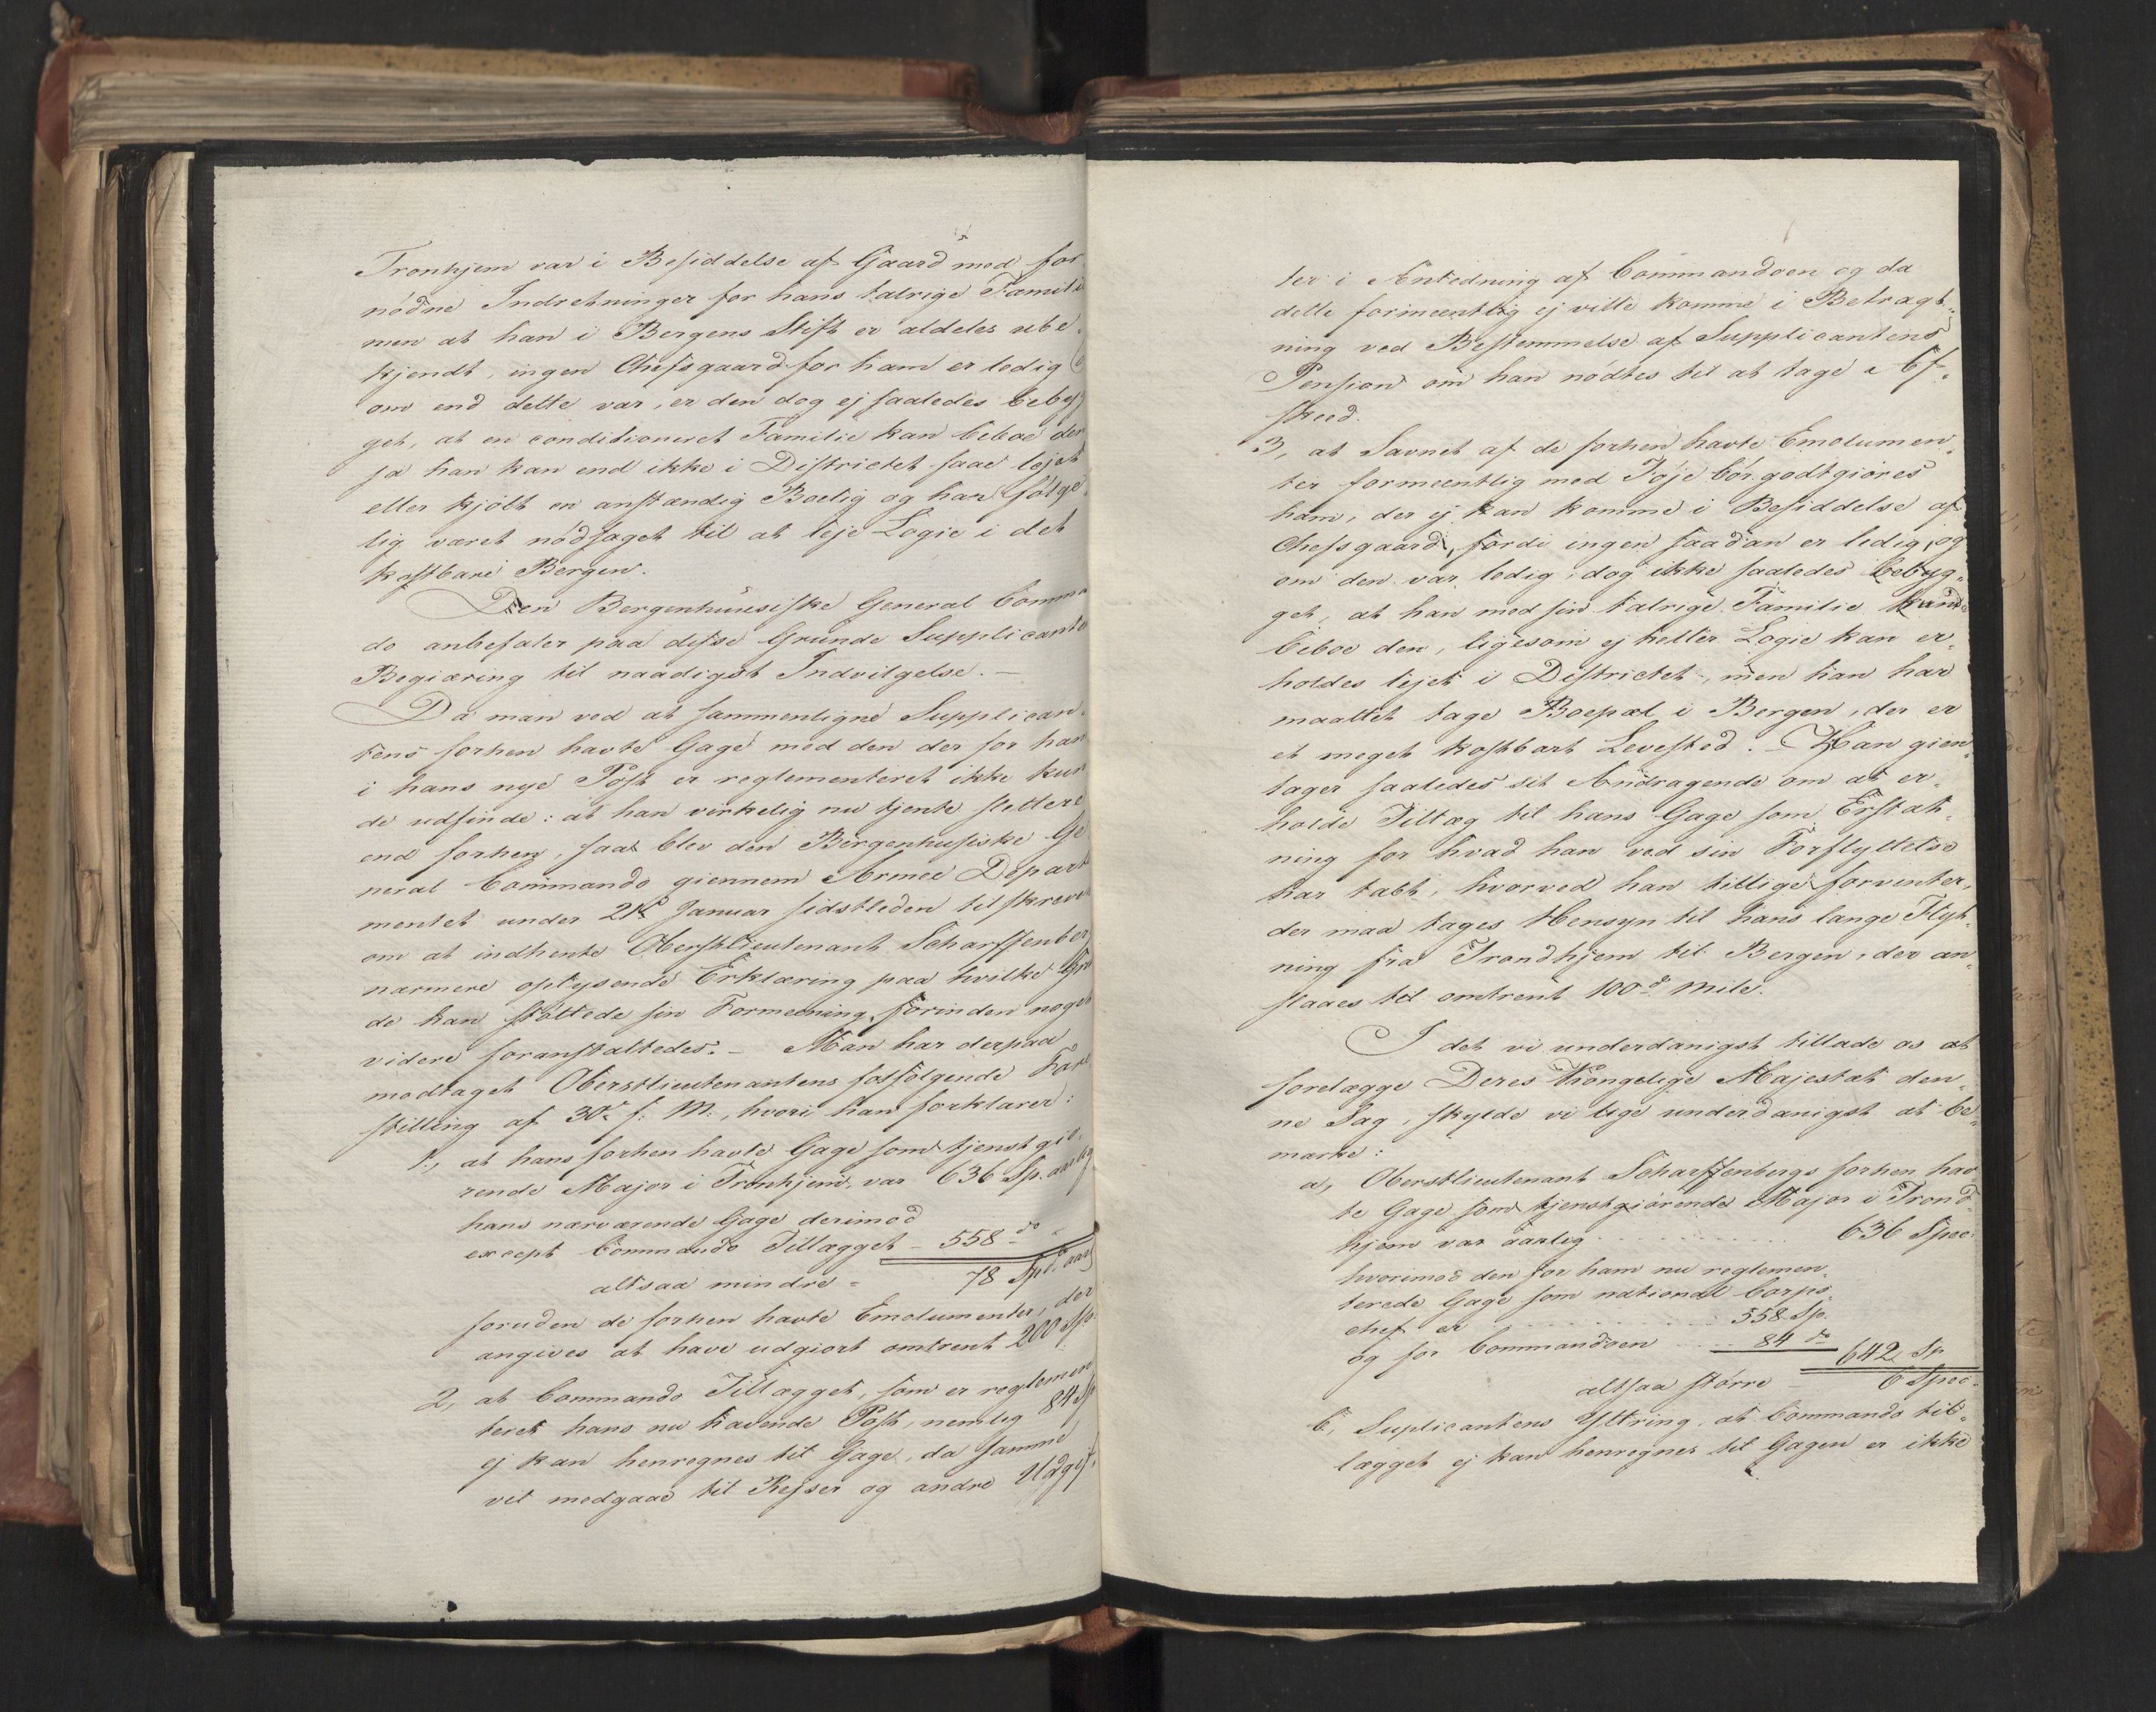 Tronhjem var i Besiddelse af Gaard med for
nødne Indretninger for hans talrige Famili
men at han i Bergens Stift er aldeles ube-
kjendt, ingen Chefsgaard for ham er ledig
om end dette var, er den dog ej saaledes beby
get, at en conditioneret Familie kan beboe den
ja han kan end ikke i Districtet faae lejet
eller kjøbt en anstændig Boelig og har følge-
lig været nødsaget til at leje Logie i det
kostbare Bergen.
Den Bergenhuusiske General Comman
do anbefaler paa disse Grunde Supplicante
Begiæring til naadigst Indvilgelse. —
Da man ved at sammenligne Supplican-
tens forhen havte Gage med den der for ham
i hans nye Post er reglementeret ikke kun
de udfinde: at han virkelig nu tjente slettere
end forhen, saa blev den Bergenhusiske Ge
neral Commando giennem Armee Departe
mentet under 21de Januar sidstleden tilskreve
om at indhente Oberstlieutenant Scharffenber
nærmere oplysende Erklæring paa hvilke Gru
de han støttede sin Formeening, forinden noget
videre foranstaltedes. — Man har derpaa
modtaget Oberstlieutenantens følgende Fore
stilling af 30te f. M., hvori han forklarer:
1, at hans forhen havte Gage som tjenstgiø-
rende Major i Tronhjem, var 636 Sp. aarlig
hans nærværende Gage derimod
except Commando Tillægget — 558 do
altsaa mindre = 78 Spd. aarl
foruden de forhen havte Emolumenter, der
angives at have udgiort omtrent 200 Sp.
2, at Commando Tillægget, som er reglemen
teret hans nu havende Post, nemlig 84 Sp
ej kan henregnes til Gage, da samme
vil medgaae til Rejser og andre Udgif-
ter i Anledning af Commandoen og da
dette formeentlig ej ville komme i Betragt-
ning ved Bestemmelse af Supplicantens
Pension om han nødtes til at tage Af-
skeed.
3, at Savnet af de forhen havte Emolumen-
ter formeentlig med Føje bør godtgiøres
ham, der ej kan komme i Besiddelse af
Chefsgaard, fordi ingen saadan er ledig, og
om den var ledig, dog ikke saaledes bebyg-
get, at han med sin talrige Familie kunde
beboe den, ligesom ej heller Logie kan er-
holdes lejet i Districtet, men han har
maattet tage Boepæl i Bergen, der er
et meget kostbart Levested. — Han gien-
tager saaledes sit Andragende om at er-
holde Tillæg til hans Gage som Erstat-
ning for hvad han ved sin Forflyttelse
har tabt, hvorved han tillige forventer,
der maa tages Hensyn til hans lange Flyt-
ning fra Trondhjem til Bergen, der an-
slaaes til omtrent 100de Mile.
I det vi underdanigst tillade os at
forelægge Deres Kongelige Majestæt den-
ne Sag, skylde vi lige underdanigst at be-
mærke:
a, Oberstlieutenant Scharffenbergs forhen hav-
te Gage som tjenstgiørende Major i Trond-
hjem var aarlig . . . . . . 636 Spec.
hvorimod den for ham nu reglemen-
terede Gage som national Corps-
chef er . . . . . . 558 Sp.
og for Commandoen . . . . 84 do
642 Sp
altsaa større — 6 Spec.
b, Suplicantens Yttring, at Commando til-
lægget ej kan henregnes til Gagen er ikke